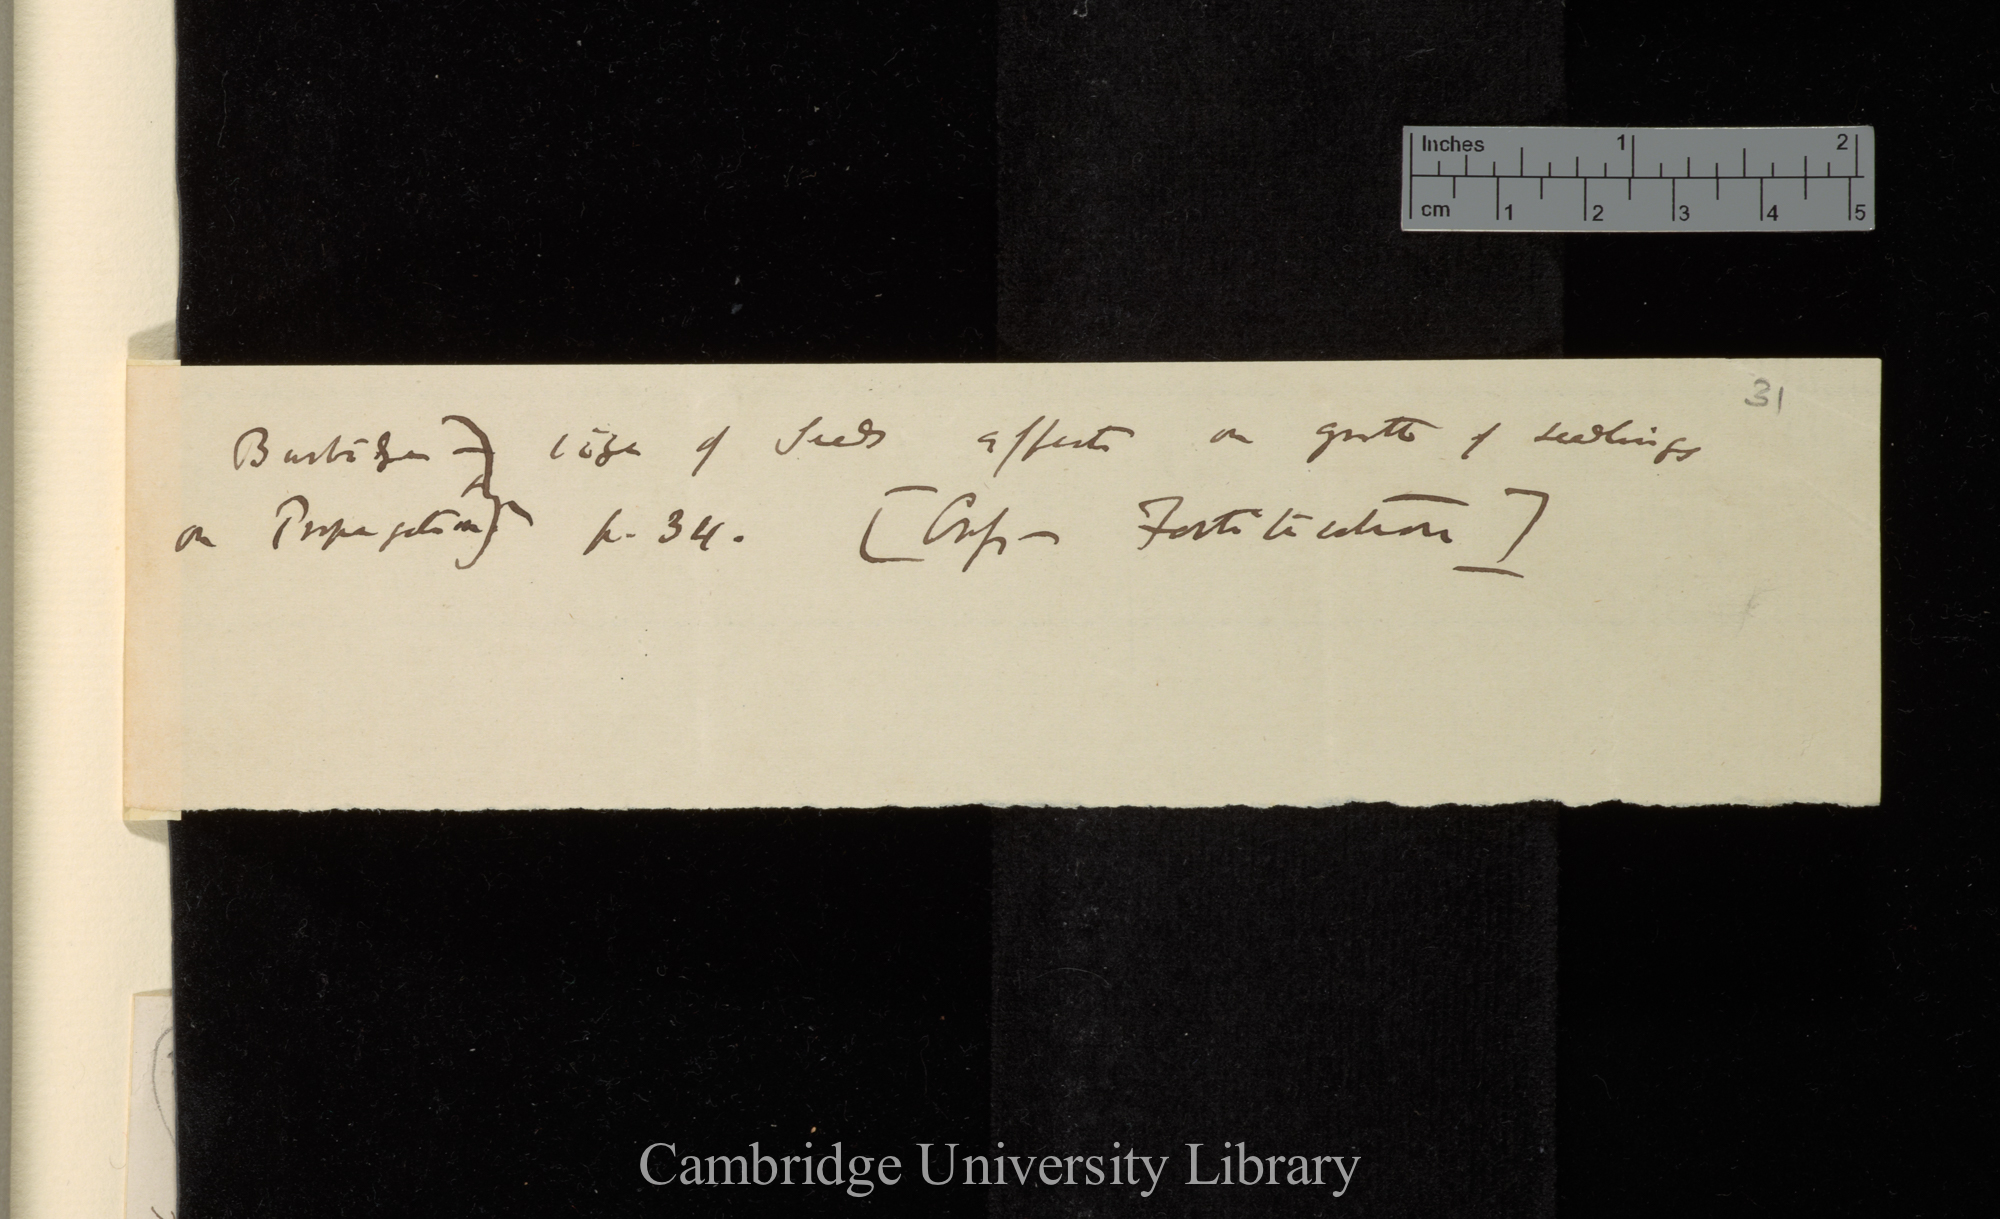 31
Burbidge } size of Seeds effects on growth of seedlings
on Propagation } p. 34. [Cross- Fertilisation]
Inches 1 2
cm 1 2 3 4 5
Cambridge University Library